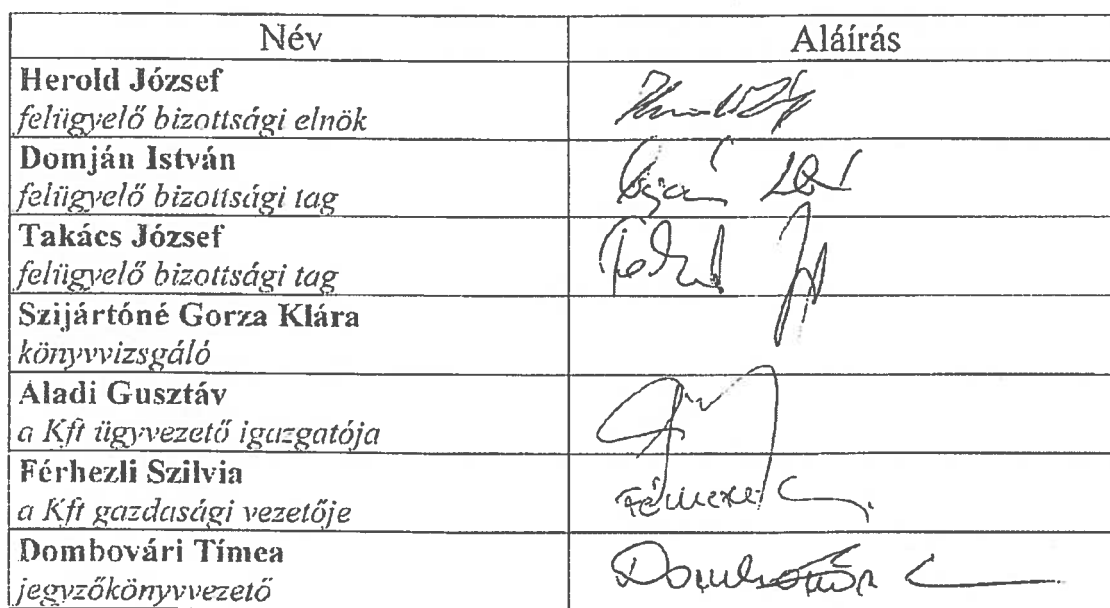 Név Aláírás
Herold József
felügyelő bizottsági elnök
Domján István
felügyelő bizottsági tag
Takács József
felügyelő bizottsági tag
Szijártóné Gorza Klára
könyvvizsgáló
Aladi Gusztáv
a Kft ügyvezető igazgatója
Férhezli Szilvia
a Kft gazdasági vezetője
Dombovári Tímea
jegyzőkönyvvezető